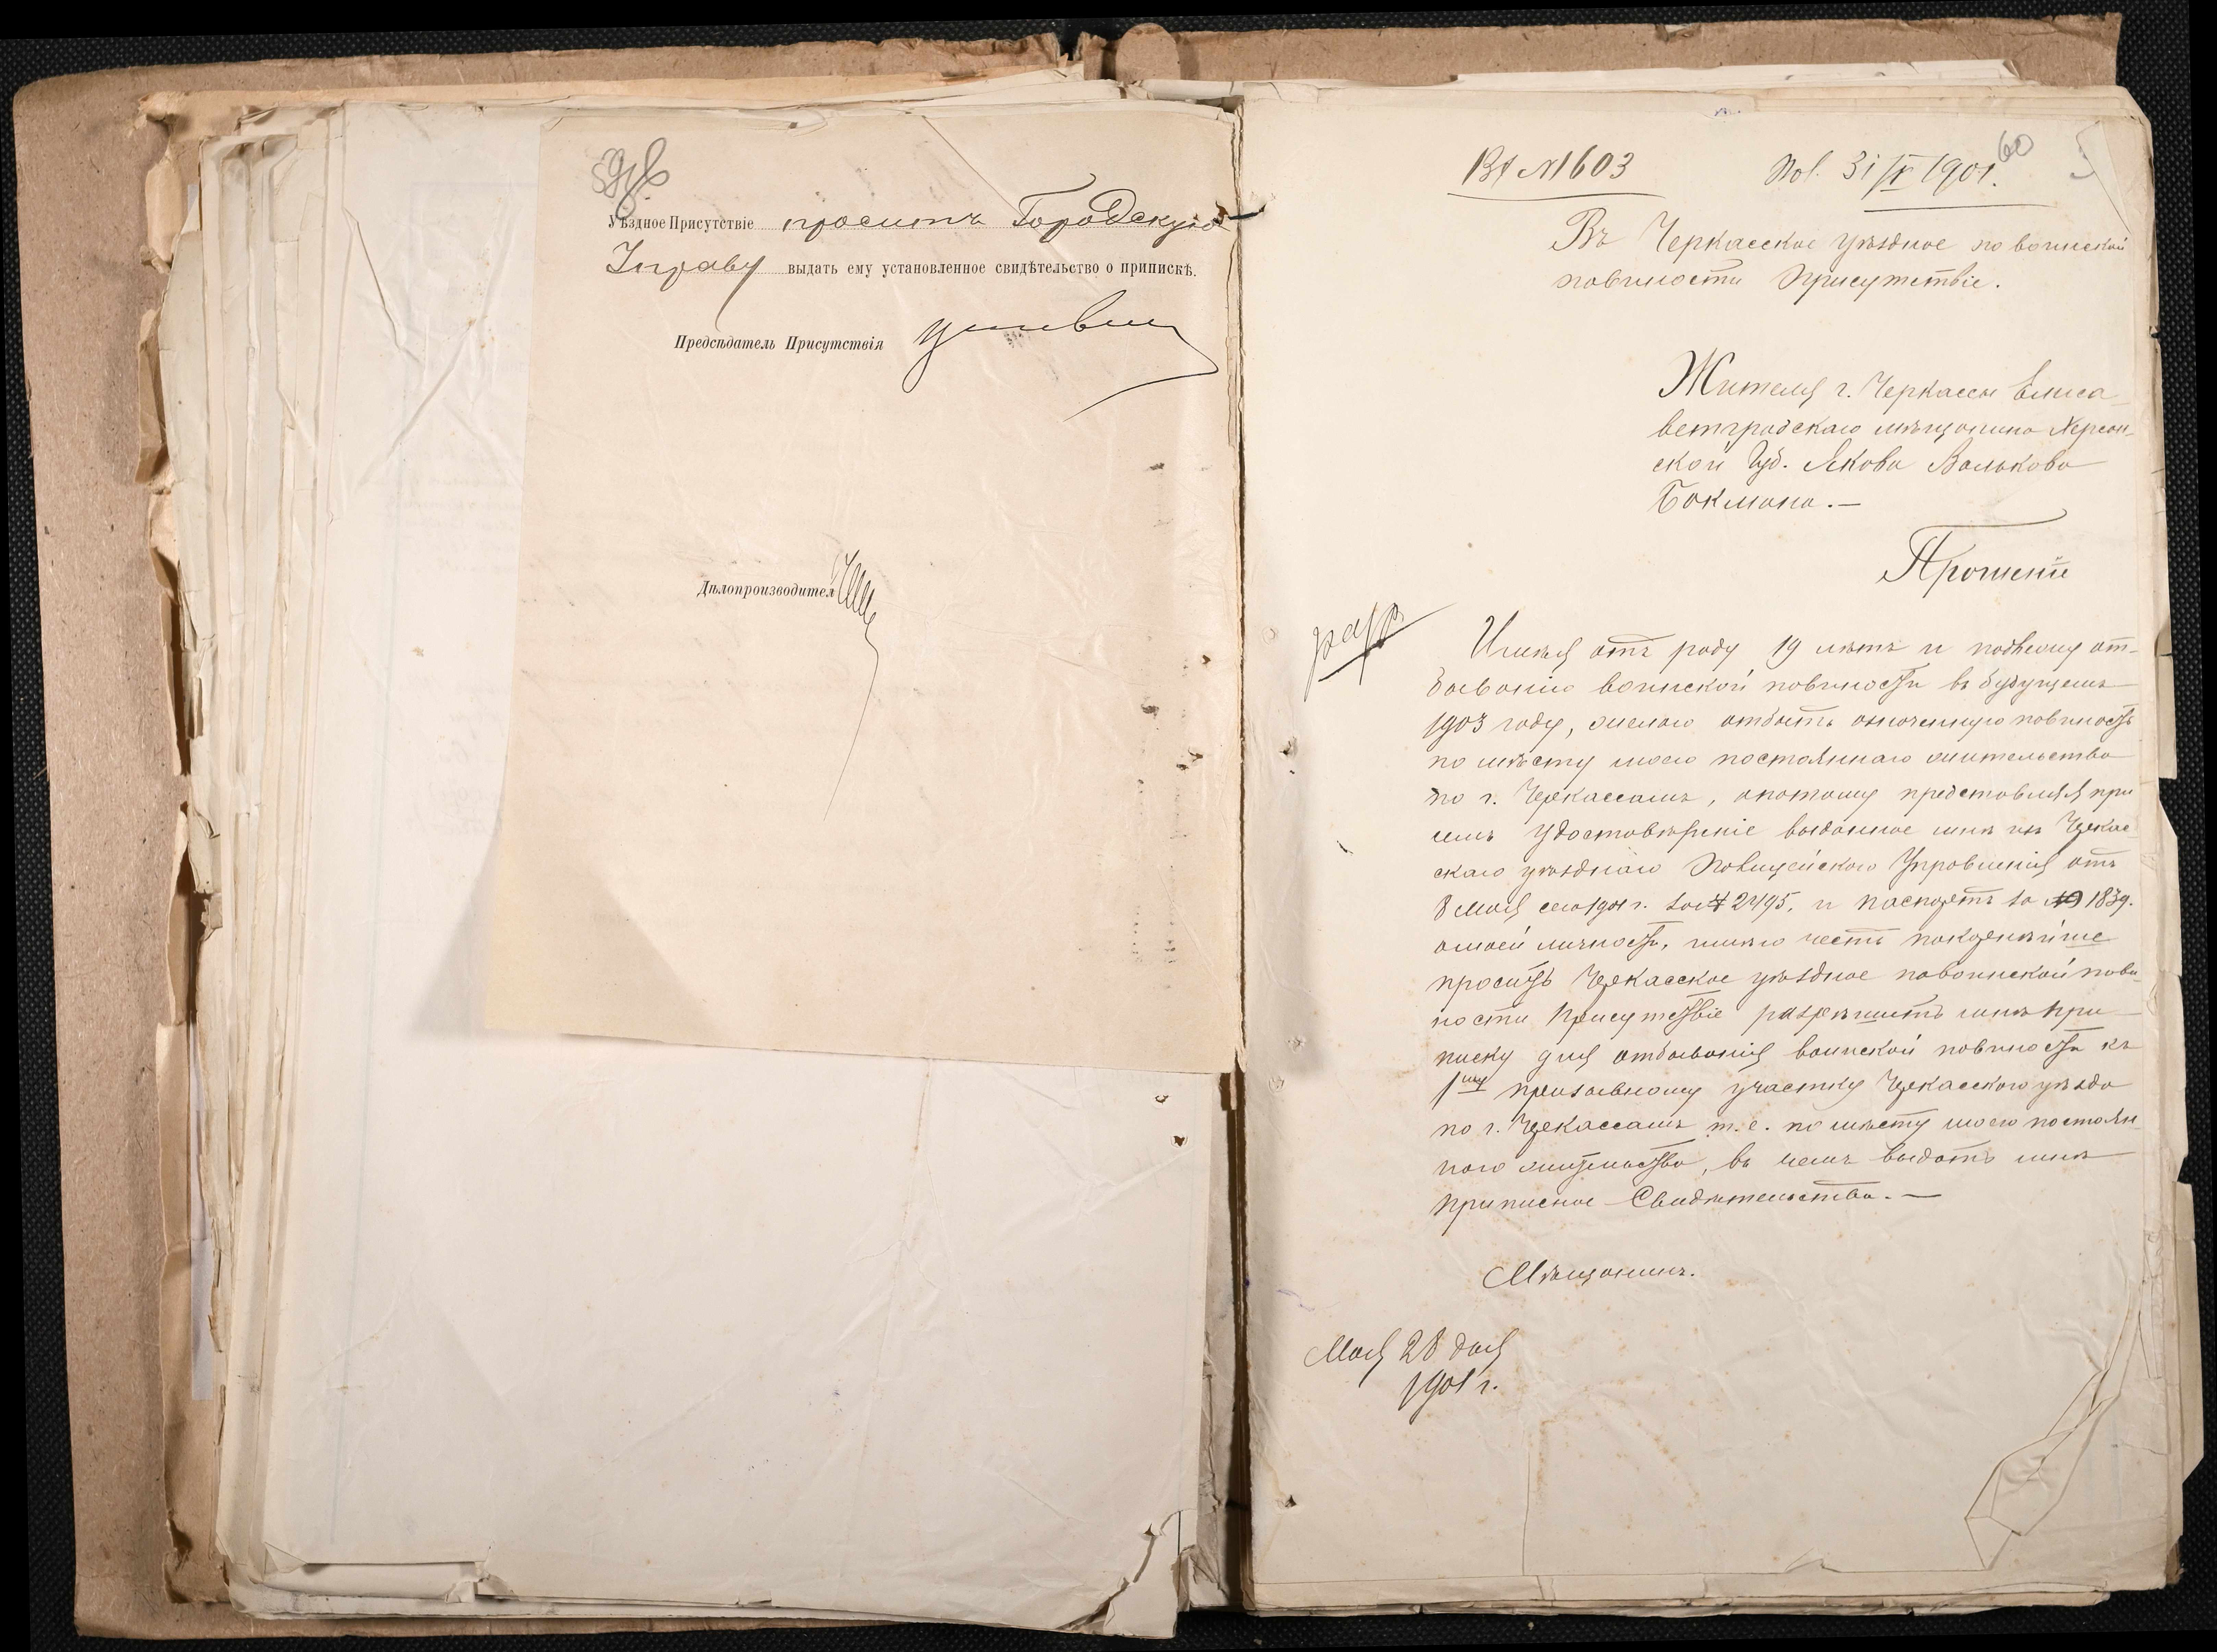 59об
Уѣздное Присутствіе проситъ Городскую
Управу выдать ему установленное свидѣтельство о припискѣ.
Предсѣдатель Присутствія
Дѣлопроизводител
Вх №1603 Пол. 31/V 1901. 60
Въ Черкасское уѣздное по воинской
повинности Присутствіе.
Жителя г. Черкассы Елиса-
ветградскаго мѣщанина Херсон-
ской Губ. Якова Волькова
Бокмана.—
Прошеніе
разр.
Имѣя отъ роду 19 лѣтъ и подлежу от-
быванію воинской повиности въ будущемъ
1903 году, желаю отбыть означенную повиность
по мѣсту моего постояннаго жительства
по г. Черкассамъ, апотому представляя при
семъ удостовѣреніе выданное мнѣ изъ Черкас
скаго уѣзднаго Полицейскаго Управленія отъ
8 Мая сего 1901 г. за № 2495, и паспортъ за № 1839.
о моей личности, имѣю честь покорнѣйше
просить Черкасское уѣздное повоинской пови
ности Присутствіе разрѣшить мнѣ при-
писку для отбыванія воинской повиности къ
1му призывному участку Черкасского уѣзда
по г. Черкассамъ т.е. по мѣсту моего постоян-
наго жительства, въ чемъ выдать мнѣ
приписное Свидѣтельство.—
Мѣщанинъ.
Мая 28 дня
1901 г.